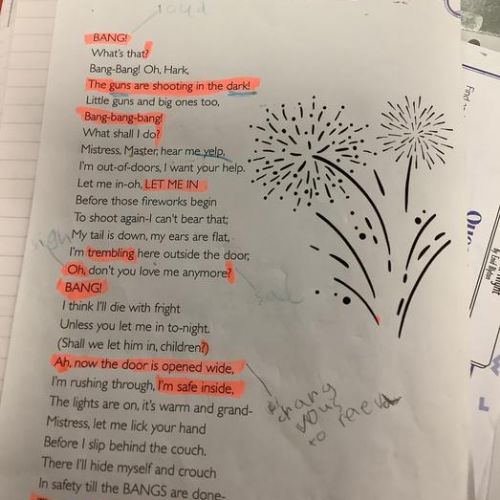 loud
BANG!
What's that?
Bang-Bang! Oh, Hark,
The guns are shooting in the dark!
Little guns and big ones too,
Bang-bang-bang!
What shall I do?
Mistress, Master, hear me yelp,
I'm out-of-doors, I want your help.
Let me in-oh, LET ME IN
Before those fireworks begin
To shoot again-I can't bear that;
My tail is down, my ears are flat,
I'm trembling here outside the door,
Oh, don't you love me anymore?
sad
BANG!
I think I'll die with fright
Unless you let me in to-night.
(Shall we let him in, children?)
Ah, now the door is opened wide,
I'm rushing through, I'm safe inside,
The lights are on, it's warm and grand-
Mistress, let me lick your hand
Before I slip behind the couch.
There I'll hide myself and crouch
In safety till the BANGS are done-
to
Find